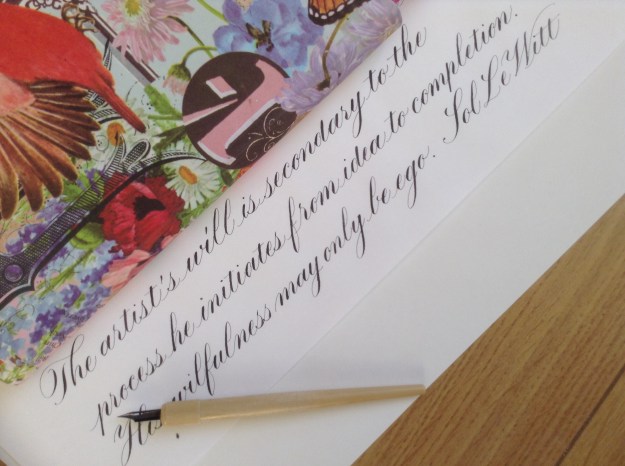 The artist's will is secondary to the
process he initiates from idea to completion.
His wilfulness may only be ego. Sol LeWitt